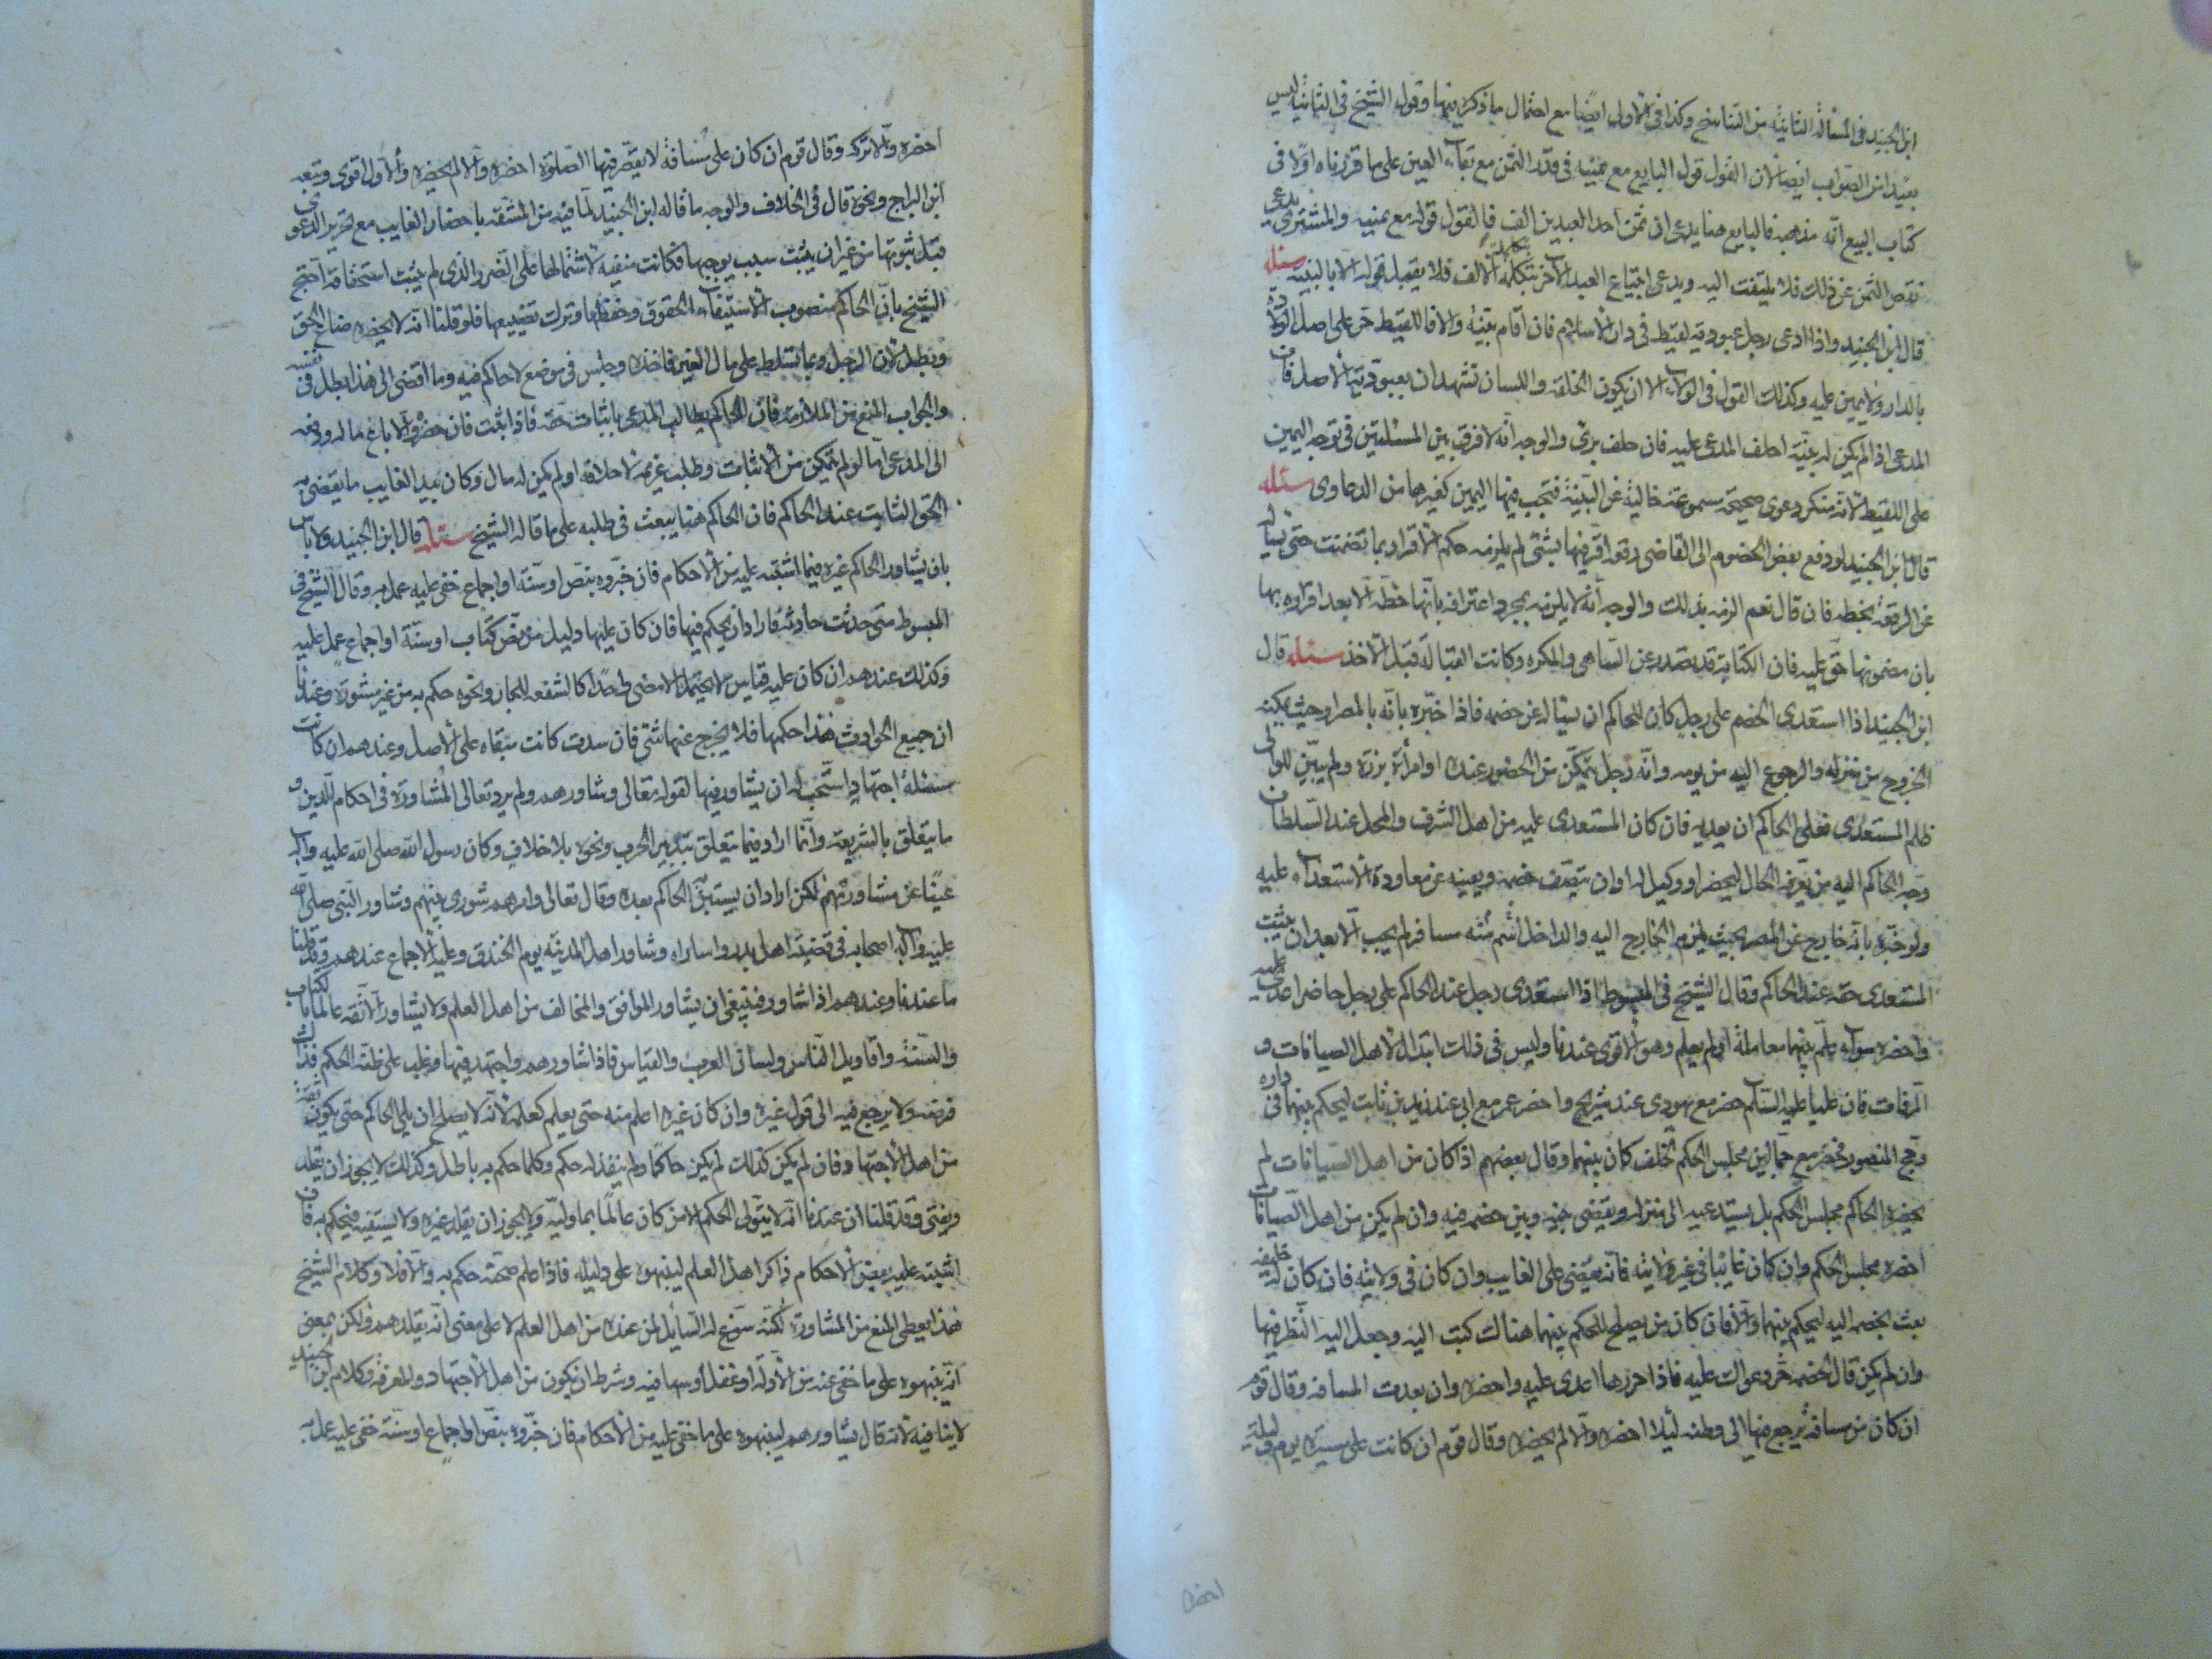 ابن الجنيد في المسألة الثانية من التناسخ وكذا في الاولى ايضا مع احتمال ما ذكره فيها وقول الشيخ في الثانية ليس
بعيدا من الصواب ايضا لان القول قول البايع مع يمينه في قدر الثمن مع بقاء العين على ما قررناه اولا في
كتاب البيع انه مذهبه فالبايع هنا يدعى ان ثمن احد العبدين الف فالقول قوله مع يمينه والمشترى يدعى
نقص الثمن عن ذلك فلا يلتفت اليه ويدعى ابتياع العبد الاخر بتكملة الالف فلا يقبل قوله الا بالبينة مسئله
قال ابن الجنيد واذا ادعى رجل عبودية لقيط في دار الاسلام فان اقام بينة والا فاللقيط حر على اصل الولادة
بالدار ولا يمين عليه وكذلك القول في الولاء الا ان يكون الخلقة واللسان تشهدان بعبودية الاصل فان
المدعى اذا لم يكن له بينة احلف المدعى عليه فان حلف برئ والوجه انه لا فرق بين المسئلتين في توجه اليمين
على اللقيط لانه منكر دعوى صحيحة مسموعة خالية عن البينة فتجب فيها اليمين كغيرها من الدعاوى مسئله
قال ابن الجنيد لو دفع بعض الخصوم الى القاضى رقعة اقر فيها بشئ لم يلزمه حكم الاقرار بما تضمنت حتى يسأله
عن الرقعة بخطه فان قال نعم الزمه بذلك والوجه انه لا يلزمه بمجرد اعترافه بانها خطه الا بعد اقراره بها
بان مضمونها حق عليه فان الكتابة قد تصدر عن الساهى والمكره وكانت القبالة قبل الاخذ مسئله قال
ابن الجنيد اذا استعدى الخصم على رجل كان للحاكم ان يسأله عن خصمه فاذا خبره بانه بالمصر او حيث يمكنه
الخروج من منزله والرجوع اليه من يومه وانه رجل يتمكن من الحضور عنده او امرأة برزة ولم يبين للوالى
ظلم المستعدى فعلى الحاكم ان يعديه فان كان المستعدى عليه من اهل الشرف والمحل عند السلطان
وجه الحاكم اليه من يعرفه الحال ليحضر او وكيل له او ان ينصف خصمه ويغنيه عن معاودة الاستعداء عليه
ولو خبره بانه خارج عن المصر بحيث يلزم الخارج اليه والداخل اسم مسافر لم يجب الا بعد ان يثبت
المستعدى حقه عند الحاكم وقال الشيخ في المبسوط اذا استعدى رجل عند الحاكم على رجل حاضر اعدى عليه
واحضره سواء علم بينهما معاملة او لم يعلم وهو الاقوى عندنا وليس في ذلك ابتذال لاهل الصيانات و
المروات فان عليا عليه السلام حضر مع يهودى عند شريح واحضر عمر مع ابى عند زيد بن ثابت ليحكم بينهما في داره
وحج المنصور فحضر مع جمالين مجلس الحكم لخلف كان بينهما وقال بعضهم اذا كان من اهل الصيانات لم
يحضره الحاكم مجلس الحكم بل يستدعيه الى منزله ويقضى بينه وبين خصمه فيه وان لم يكن من اهل الصيانات
احضره مجلس الحكم وان كان غائبا في غير ولايته فانه يقضى على الغايب وان كان في ولايته فان كان له خليفة
بعث بخصمه اليه ليحكم بينهما والا فان كان من يصلح للحكم بينهما هناك كتب اليه وجعل اليه النظر فيها
وان لم يكن قال لخصمه حرر دعواك عليه فاذا حررها اعدى عليه واحضره وان بعدت المسافة وقال قوم
ان كان من مسافة يرجع فيها الى وطنه ليلا احضره والا لم يحضره وقال قوم ان كانت على مسيرة يوم وليلة
احضره
احضره والا تركه وقال قوم ان كان على مسافة لا يقصر فيها الصلوة احضره والا لم يحضره والاول اقوى وتبعه
ابن البراج ونحوه قال في الخلاف والوجه ما قاله ابن الجنيد لما فيه من المشقة باحضار الغايب مع تحرير الدعوى
قبل ثبوتها من غير ان يثبت سبب يوجبها فكانت منفية لاشتمالها على الضرر الذى لم يثبت استحقاقه احتج
الشيخ بان الحاكم منصوب لاستيفاء الحقوق وحفظها وترك تضييعها فلو قلنا انه لا يحضره ضاع الحق
وبطل لان الرجل ربما تسلط على مال الغير فاخذه وجلس في موضع لا حاكم فيه وما افضى الى هذا بطل في نفسه
والجواب المنع من الملازمة فان الحاكم يطالب المدعى باثبات حقه فاذا اثبت فان حضر والا باع ماله ودفعه
الى المدعى اما لو لم يتمكن من الاثبات وطلب غريمه لاحلافه او لم يكن له مال وكان بيد الغايب ما يقضى به
الحق الثابت عند الحاكم فان الحاكم هنا يبعث في طلبه على ما قاله الشيخ مسئله قال ابن الجنيد ولا باس
بان يشاور الحاكم غيره فيما اشتبه عليه من الاحكام فان خبروه بنص او سنة او اجماع خفى عليه عمل به وقال الشيخ في
المبسوط متى حدثت حادثة فاراد ان يحكم فيها فان كان عليها دليل من نص كتاب او سنة او اجماع عمل عليه
وكذلك عندهم ان كان عليه قياس لا يحتمل الا معنى واحدا كالشفعه للجار ونحوه حكم به من غير مشورة وعندنا
ان جميع الحوادث هذا حكمها فلا يخرج عنها شئ فان سدت كانت مبقاه على الاصل وعندهم ان كانت
مسئلة اجتهاد استحب له ان يشاور فيها لقوله تعالى وشاورهم ولم يرد تعالى المشاورة في احكام الدين و
ما يتعلق بالشريعة وانما اراد فيما يتعلق بتدبير الحرب ونحوه بلا خلاف وكان رسول الله صلى الله عليه وآله
غنيا عن مشاورتهم لكن اراد ان يستن الحاكم بعده وقال تعالى وامرهم شورى بينهم وشاور النبى صلى الله
عليه وآله اصحابه في قضية اهل بدر واساراه وشاور اهل المدينة يوم الخندق وعليه الاجماع عندهم وقد قلنا
ما عندنا وعندهم اذا شاور فينبغى ان يشاور الموافق والمخالف من اهل العلم ولا يشاور الا ثقة عالما بالكتاب
والسنة واقاويل الناس ولسان العرب والقياس فاذا شاورهم واجتهد فيها وغلب على ظنه الحكم فذاك
فرضه ولا يرجع فيه الى قول غيره وان كان غيره اعلم منه حتى يعلم كعلمه لانه لا يصلح ان يلى الحاكم حتى يكون ثقة
من اهل الاجتهاد فان لم يكن كذلك لم يكن حاكما ولم ينفذ له حكم وكلما حكم به باطل وكذلك لا يجوز ان يقلد
ويفتى وقد قلنا ان عندنا انه لا يتولى الحكم الا من كان عالما بما وليه ولا يجوز ان يقلد غيره ولا يستفتيه فيحكم به فان
اشتبه عليه بعض الاحكام ذاكر اهل العلم لينبهوه على دليله فاذا علم صحته حكم به والا فلا وكلام الشيخ
هذا يعطى المنع من المشاورة لكنه سوغ له السائل لمن عنده من اهل العلم لا على معنى انه يقلدهم ولكن بمعنى
انه ينبهوه على ما خفى عنه من الادلة او غفل او سها فيه وشرط ان يكون من اهل الاجتهاد والمعرفة وكلام ابن الجنيد
لا ينافيه لانه قال يشاورهم لينبهوه على ما خفى عليه من الاحكام فان خبروه بنص او اجماع او سنة خفى عليه عمل به